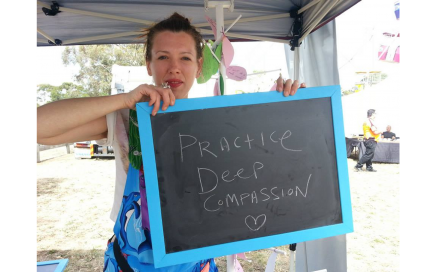 PRACTICE
DEEP
COMPASSION